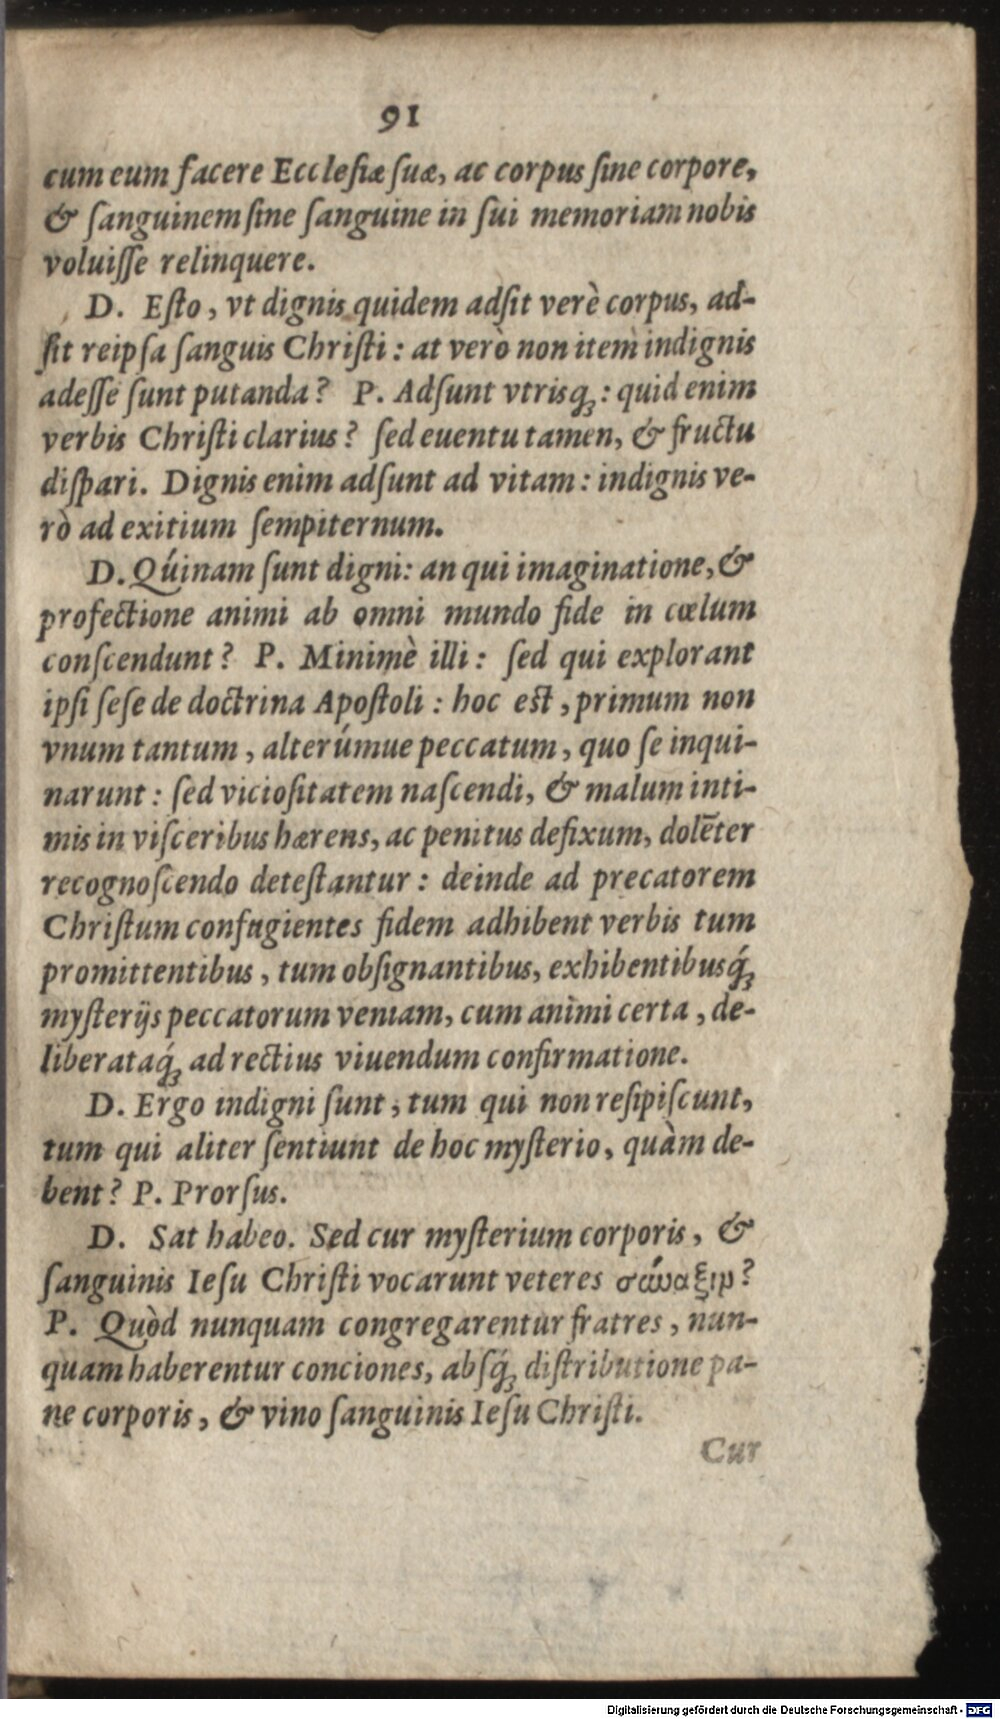 91
cum eum facere Eccleſiæ ſuæ, ac corpus ſine corpore,
& ſanguinem ſine ſanguine in ſui memoriam nobis
voluiſſe relinquere.
D. Eſto, vt dignis quidem adſit verè corpus, ad-
ſit reipſa ſanguis Chriſti: at verò non itèm indignis
adeſſe ſunt putanda? P. Adſunt vtrisq́ꝫ: quid enim
verbis Chriſti clarius? ſed euentu tamen, & fructu
diſpari. Dignis enim adſunt ad vitam: indignis ve-
rò ad exitium ſempiternum.
D. Quínam ſunt digni: an qui imaginatione, &
profectione animi ab omni mundo fide in cœlum
conſcendunt? P. Minimè illi: ſed qui explorant
ipſi ſeſe de doctrina Apoſtoli: hoc eſt, primum non
vnum tantum, alterúmue peccatum, quo ſe inqui-
narunt: ſed vicioſitatem naſcendi, & malum inti-
mis in viſceribus hærens, ac penitus defixum, dolēter
recognoſcendo deteſtantur: deinde ad precatorem
Chriſtum confugientes fidem adhibent verbis tum
promittentibus, tum obſignantibus, exhibentibusq́ꝫ
myſterijs peccatorum veniam, cum animi certa, de-
liberataq́ꝫ ad rectius viuendum confirmatione.
D. Ergo indigni ſunt, tum qui non reſipiſcunt,
tum qui aliter ſentiunt de hoc myſterio, quàm de-
bent? P. Prorſus.
D. Sat habeo. Sed cur myſterium corporis, &
ſanguinis Ieſu Chriſti vocarunt veteres σύναξιν?
P. Quòd nunquam congregarentur fratres, nun-
quam haberentur conciones, absq́ꝫ diſtributione pa-
ne corporis, & vino ſanguinis Ieſu Chriſti.
Cur
Digitalisierung gefördert durch die Deutsche Forschungsgemeinschaft - DFG